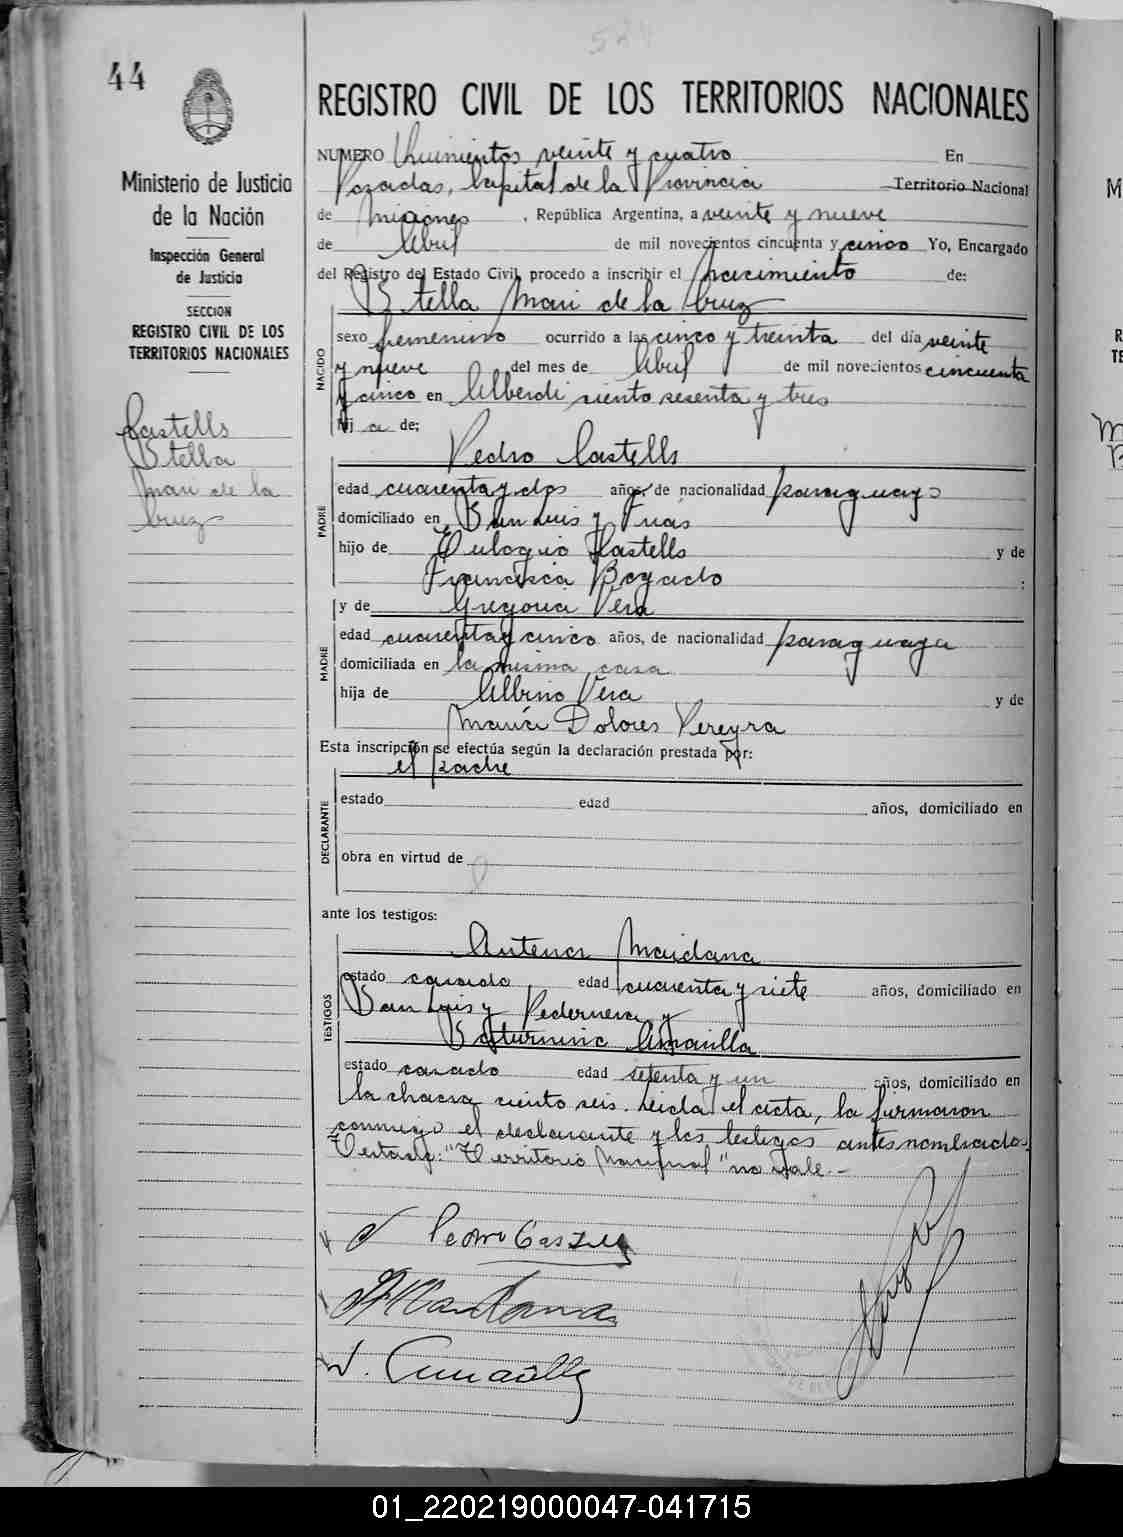 44
Ministerio de Justicia
de la Nación
Inspección General
de Justicia
SECCION
REGISTRO CIVIL DE LOS
TERRITORIOS NACIONALES
Castells
Stella
Mari de la
Cruz
524
REGISTRO CIVIL DE LOS TERRITORIOS NACIONALES
NUMERO Quinientos veinte y cuatro En
Posadas, Capital de la Provincia Territorio Nacional
de Misiones, República Argentina, a veinte y nueve
de Abril de mil novecientos cincuenta y cinco Yo, Encargado
del Registro del Estado Civil, procedo a inscribir el nacimiento de:
Stella Mari de la Cruz
NACIDO
sexo femenino ocurrido a las cinco y treinta del día veinte
y nueve del mes de Abril de mil novecientos cincuenta
y cinco en Alberdi siento sesenta y tres
hija de:
Pedro Castells
PADRE
edad cuarenta y dos años, de nacionalidad paraguayo
domiciliado en San Luis y Frías
hijo de Eulogio Castells y de
Francisca Bogado ;
y de Gregoria Vera
MADRE
edad cuarenta y cinco años, de nacionalidad paraguaya
domiciliada en la misma casa
hija de Albino Vera y de
María Dolores Pereyra
Esta inscripción se efectúa según la declaración prestada por:
el padre
DECLARANTE
estado edad años, domiciliado en
obra en virtud de
ante los testigos:
Antenor Maidana
TESTIGOS
estado casado edad cuarenta y siete años, domiciliado en
San Luis y Pedernera y
Saturnino Amarilla
estado casado edad setenta y un años, domiciliado en
la chacra ciento seis. Leida el acta, la firmaron
conmigo el declarante y los testigos antes nombrados.
Testado: "Territorio Nacional" no vale.-
Pedro Castells
01_220219000047-041715